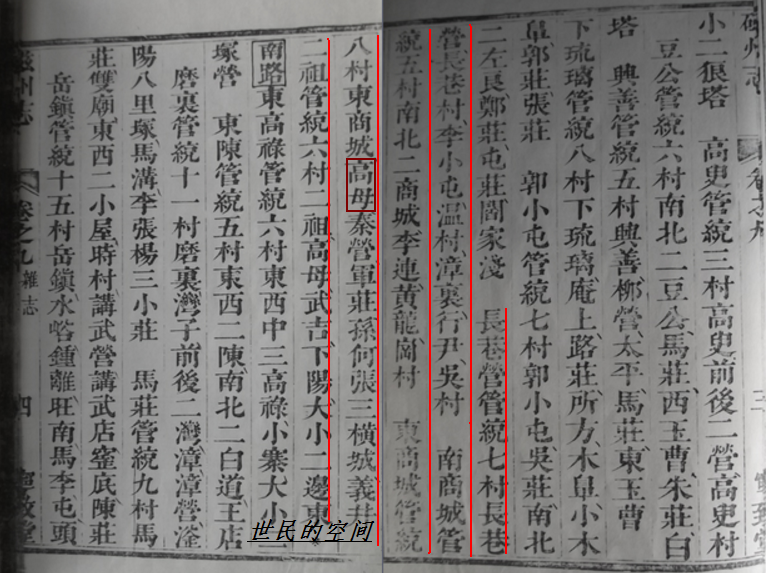 磁州志
小二狼塔　高史管統三村高史前後二營高史村
豆公管統六村南北二豆公馬莊西玉曹朱莊白
塔　興善管統五村興善柳營太平馬莊東玉曹
下琉璃管統八村下琉璃庵上路莊所方木皐小木
皐郭莊張莊　郭小屯管統七村郭小屯吳莊南北
二左良鄭莊屯莊閻家淺　長巷營管統七村長巷
營長巷村李小屯溫村漳裏行尹吳村　南商城管
統五村南北二商城李連黃龍岡村　東商城管統
八村東商城高母秦營軍莊孫何張三橫城義井
二祖管統六村二祖高母武吉下陽大小二邊東
南路東高祿管統六村東西中三高祿小寨大小二
塚營　東陳管統五村東西二陳南北二白道王店
磨裏管統十一村磨裏灣子前後二灣漳漳營滏
陽八里塚馬溝李張楊三小莊　馬莊管統九村馬
莊雙廟東西二小屋時村講武營講武店窪底陳莊
岳鎮管統十五村岳鎮水峪鍾離旺南馬李屯頭
磁州志
卷之九
雜志
四
世民的空间